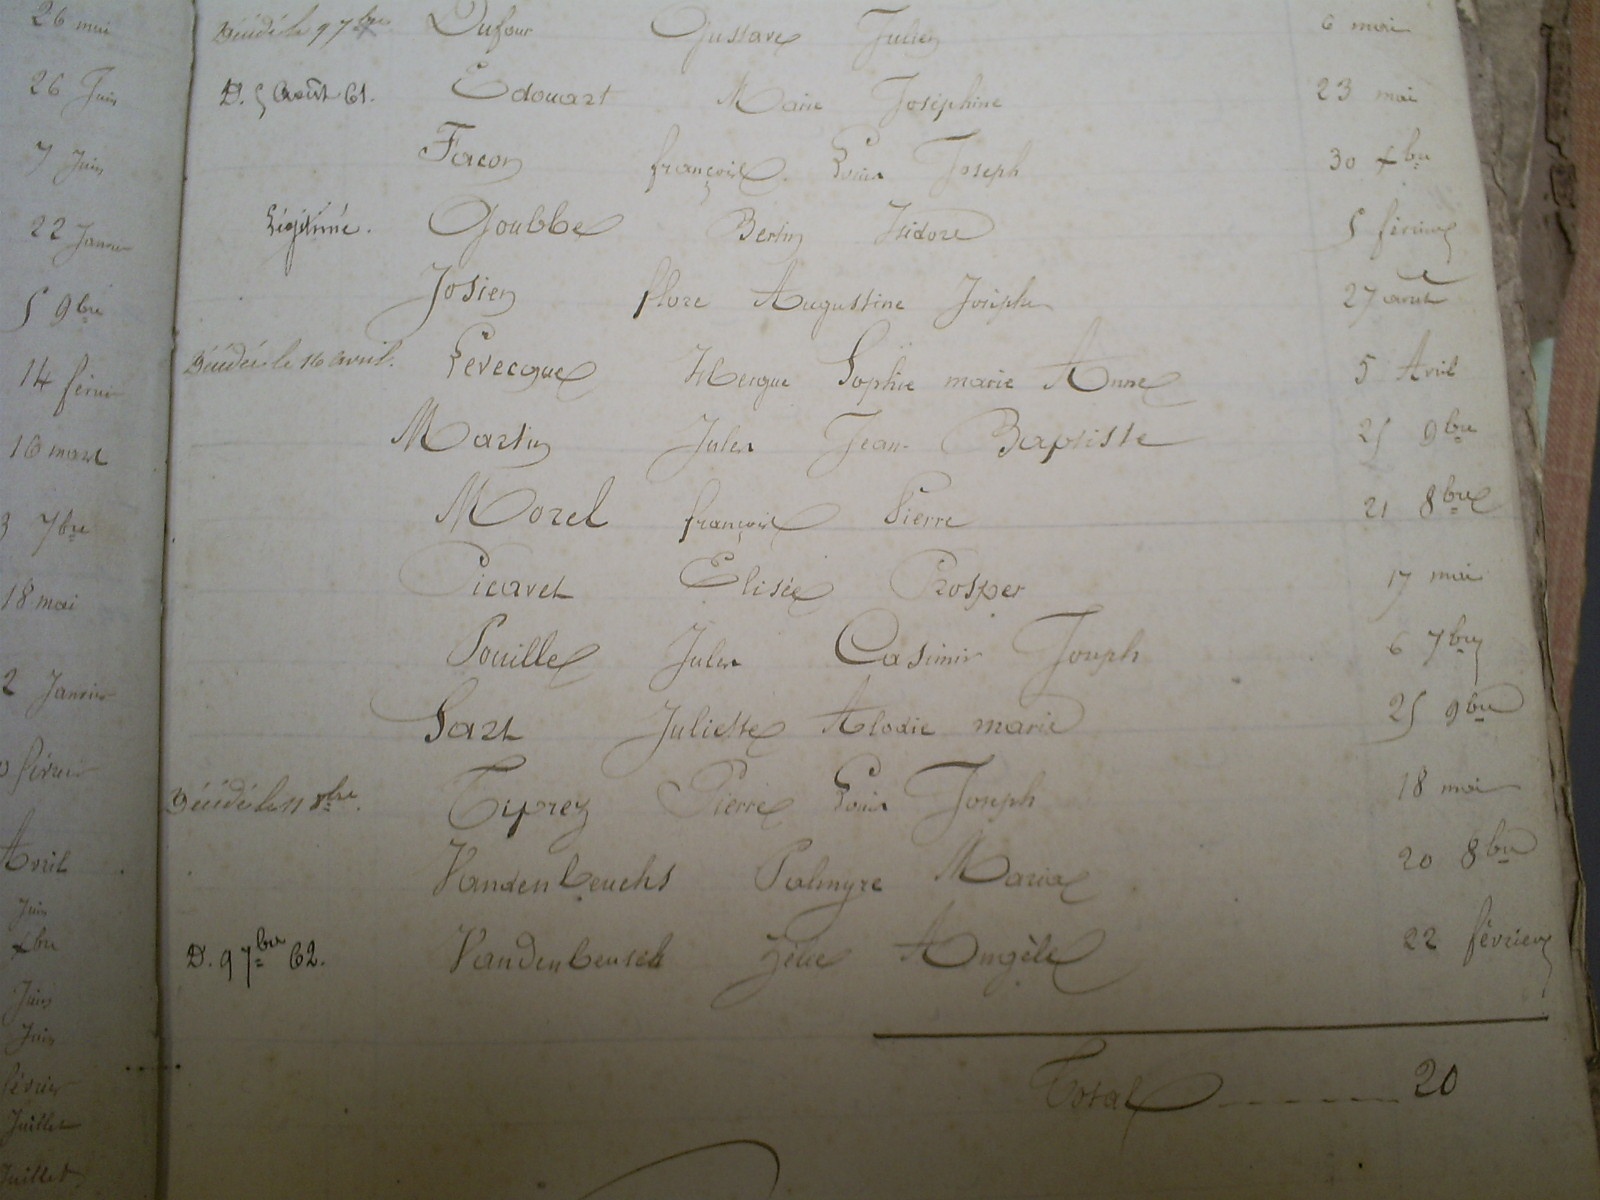 26 mai
26 Juin
7 Juin
22 Janvier
5 9bre
14 février
16 mars
3 7bre
18 mai
2 Janvier
février
Avril
Juin
xbre
Juin
Juin
février
Juillet
Juillet
Décédé le 9 7bre Dufour Gustave Julien 6 mai
D. 5 Août 61. Edouart Marie Joséphine 23 mai
Facon françois Louis Joseph 30 xbre
Légitimé. Goubbe Bertin Isidore 5 février
Josien flore Augustine Josèphe 27 août
Décédée le 16 avril. Levecque Sophie marie Anne 5 Avril
Martin Jules Jean Baptiste 25 9bre
Morel françois Pierre 21 8bre
Picavet Elisée Prosper 17 mai
Pouille Jules Casimir Joseph 6 7bre
Sart Juliette Alodie marie 25 9bre
Décédé le 11 8bre. Tiprez Pierre Louis Joseph 18 mai
Vandenbeuchs Palmyre Maria 20 8bre
D. 9 7bre 62. Vandenbeusch Zélie Angèle 22 février
Total ------- 20